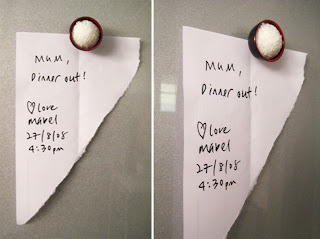 mum,
Dinner out!
♡love
mabel
27/8/08
4:30pm
mum,
Dinner out!
♡love
mabel
27/8/08
4:30pm